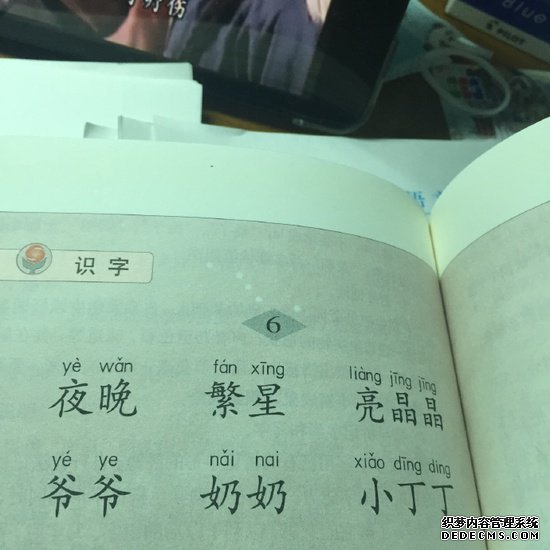 PILOT
识字
6
yè wǎn fán xīng liàng jīng jīng
夜晚 繁星 亮晶晶
yé ye nǎi nai xiǎo dīng ding
爷爷 奶奶 小丁丁
织梦内容管理系统
DEDECMS.COM